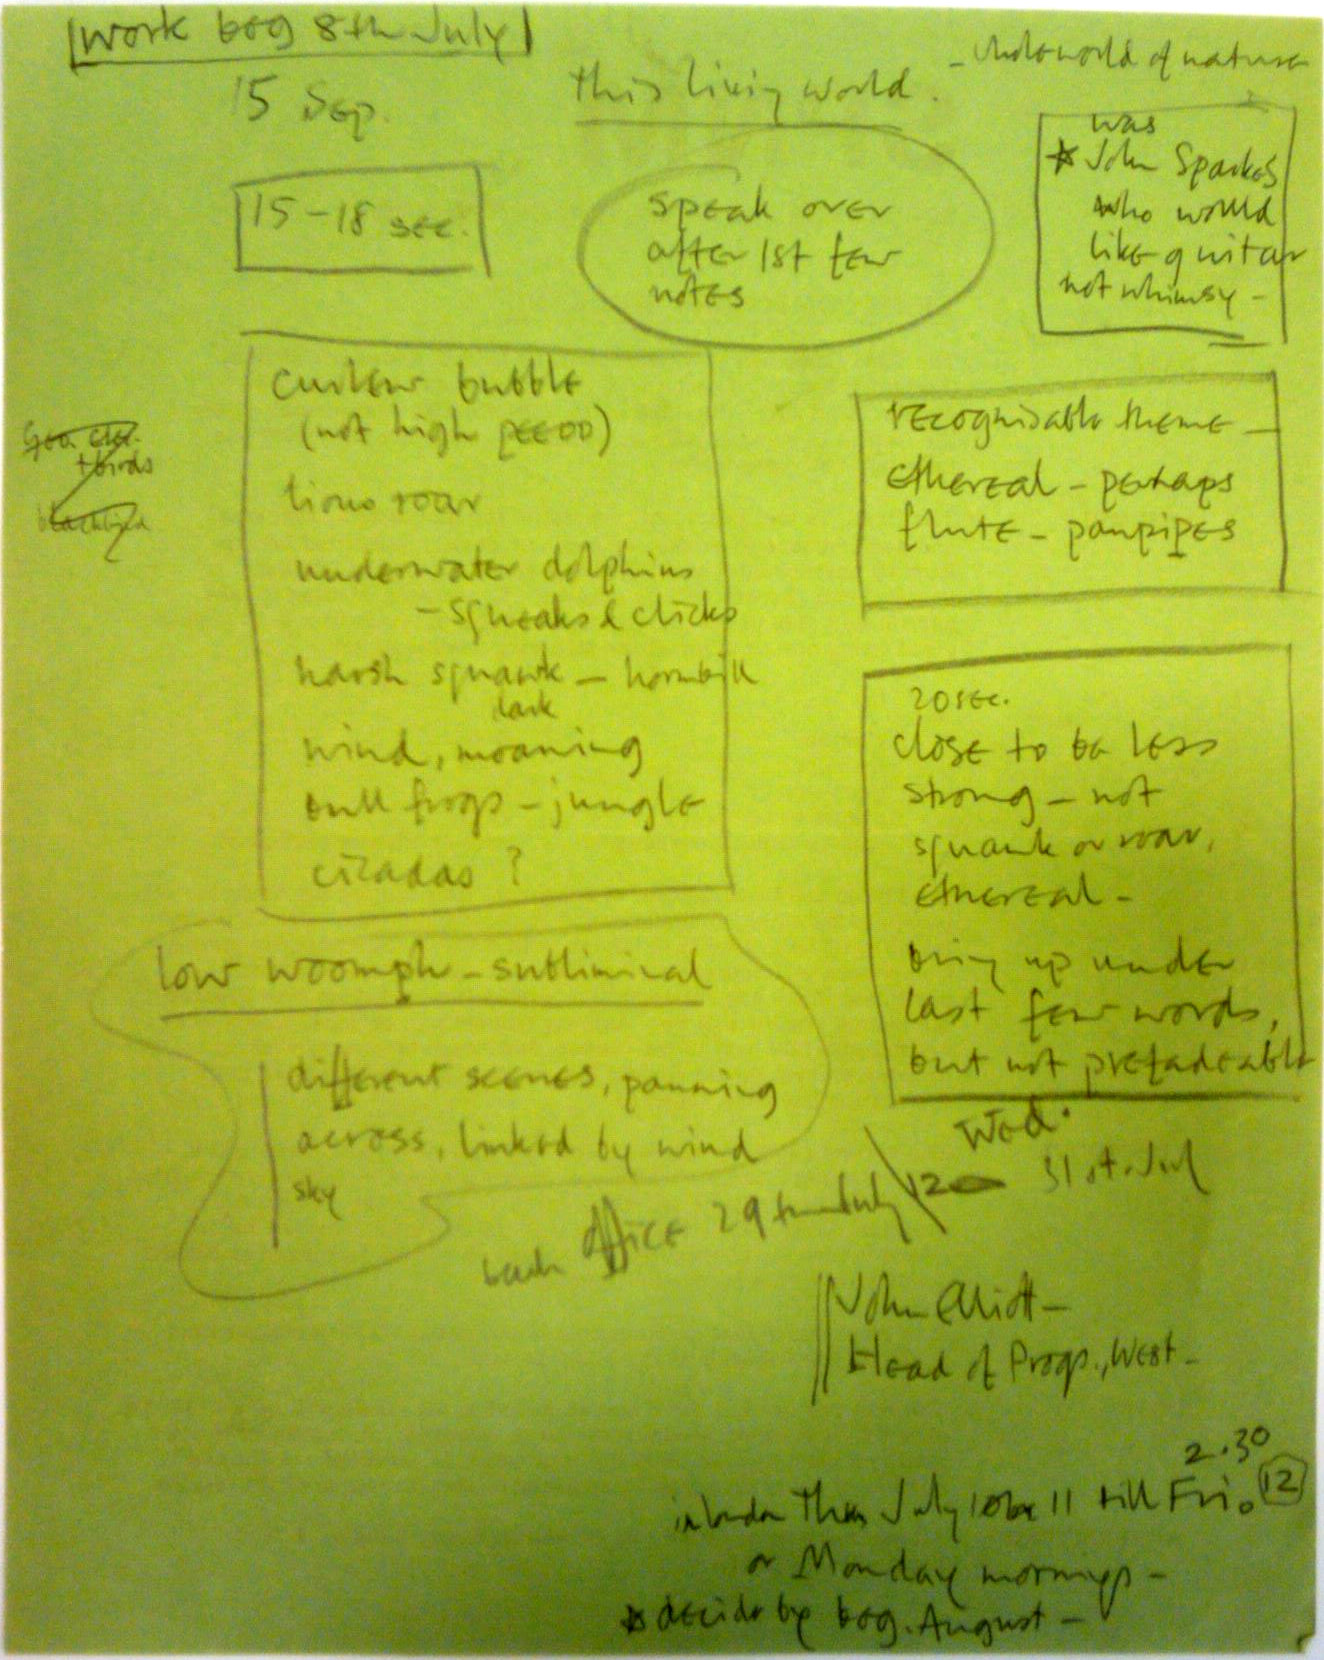 work beg 8th July
15 Sep.
this living world.
- Underworld of nature
15-18 sec.
speak over
after 1st few
notes
was
* John Sparkes
who would
like guitar
not whimsy -
curlew bubble
(not high peeoo)
lions roar
underwater dolphins
- squeaks & clicks
harsh squawk - hornbill
dark
wind, moaning
bull frogs - jungle
cicadas ?
+ birds
blackbird
recognisable theme -
ethereal - perhaps
flute - panpipes
20 sec.
close to be less
strong - not
squawk or roar,
ethereal -
bring up under
last few words,
but not prefadeable
low woomph - subliminal
different scenes, panning
across, linked by wind
sky
back office 29th July
Wed.
12 31st Jul
John Elliott -
Head of Progs., West -
2.30
in London Thurs July 11 till Fri. 12
or Monday mornings -
* decide by beg. August -